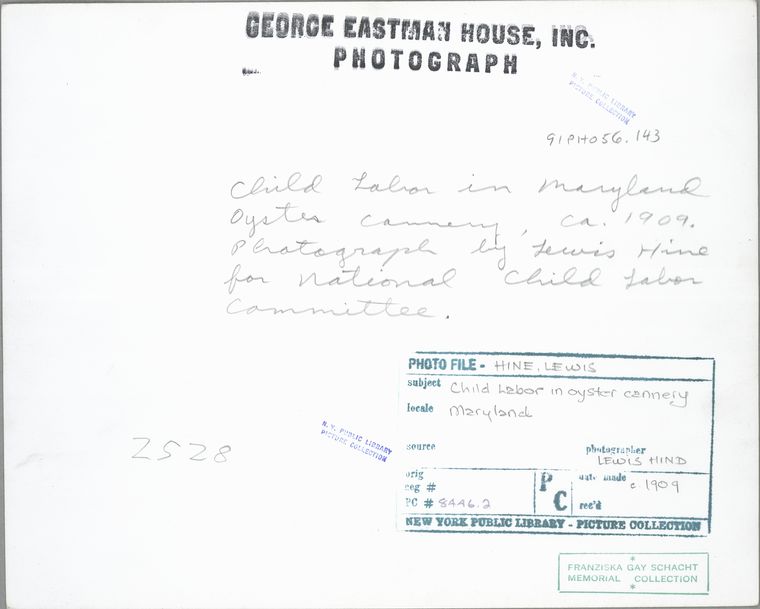 GEORGE EASTMAN HOUSE, INC.
PHOTOGRAPH
N. Y. PUBLIC LIBRARY
PICTURE COLLECTION
91PH056.143
Child Labor in Maryland
Oyster cannery, ca. 1909.
Photograph by Lewis Hine
for National Child Labor
Committee.
PHOTO FILE - HINE, LEWIS
subject Child Labor in oyster cannery
locale Maryland
source
photographer
LEWIS HIND
orig
neg #
PC # 8446.2
P
C
date made c 1909
rec'd
NEW YORK PUBLIC LIBRARY - PICTURE COLLECTION
N. Y. PUBLIC LIBRARY
PICTURE COLLECTION
2528
FRANZISKA GAY SCHACHT
MEMORIAL COLLECTION